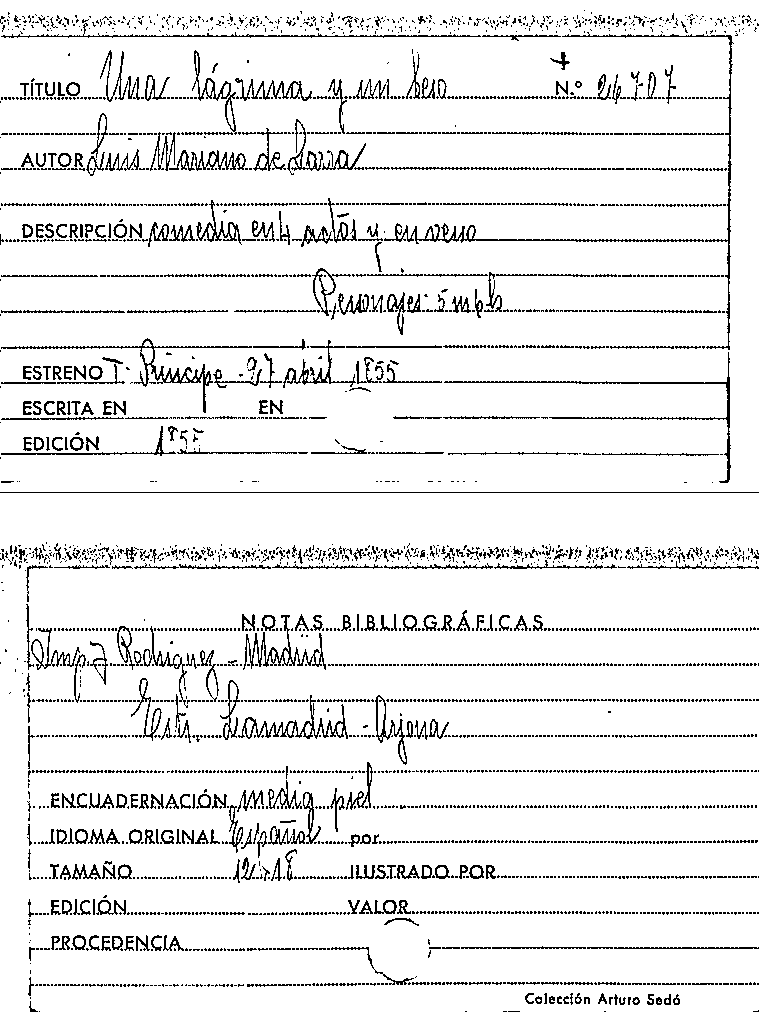 TÍTULO Una lágrima y un beso N.º 24707
AUTOR Luis Mariano de Larra
DESCRIPCIÓN comedia en 4 actos y en verso
Personajes: 5 m y 6
ESTRENO T. Príncipe - 27 abril 1855
ESCRITA EN EN
EDICIÓN 1855
NOTAS BIBLIOGRÁFICAS
Imp. J Rodriguez - Madrid
Estr. Lamadrid - Arjona
ENCUADERNACIÓN media piel
IDIOMA ORIGINAL Español por
TAMAÑO 12x18 ILUSTRADO POR
EDICIÓN VALOR
PROCEDENCIA
Colección Arturo Sedó